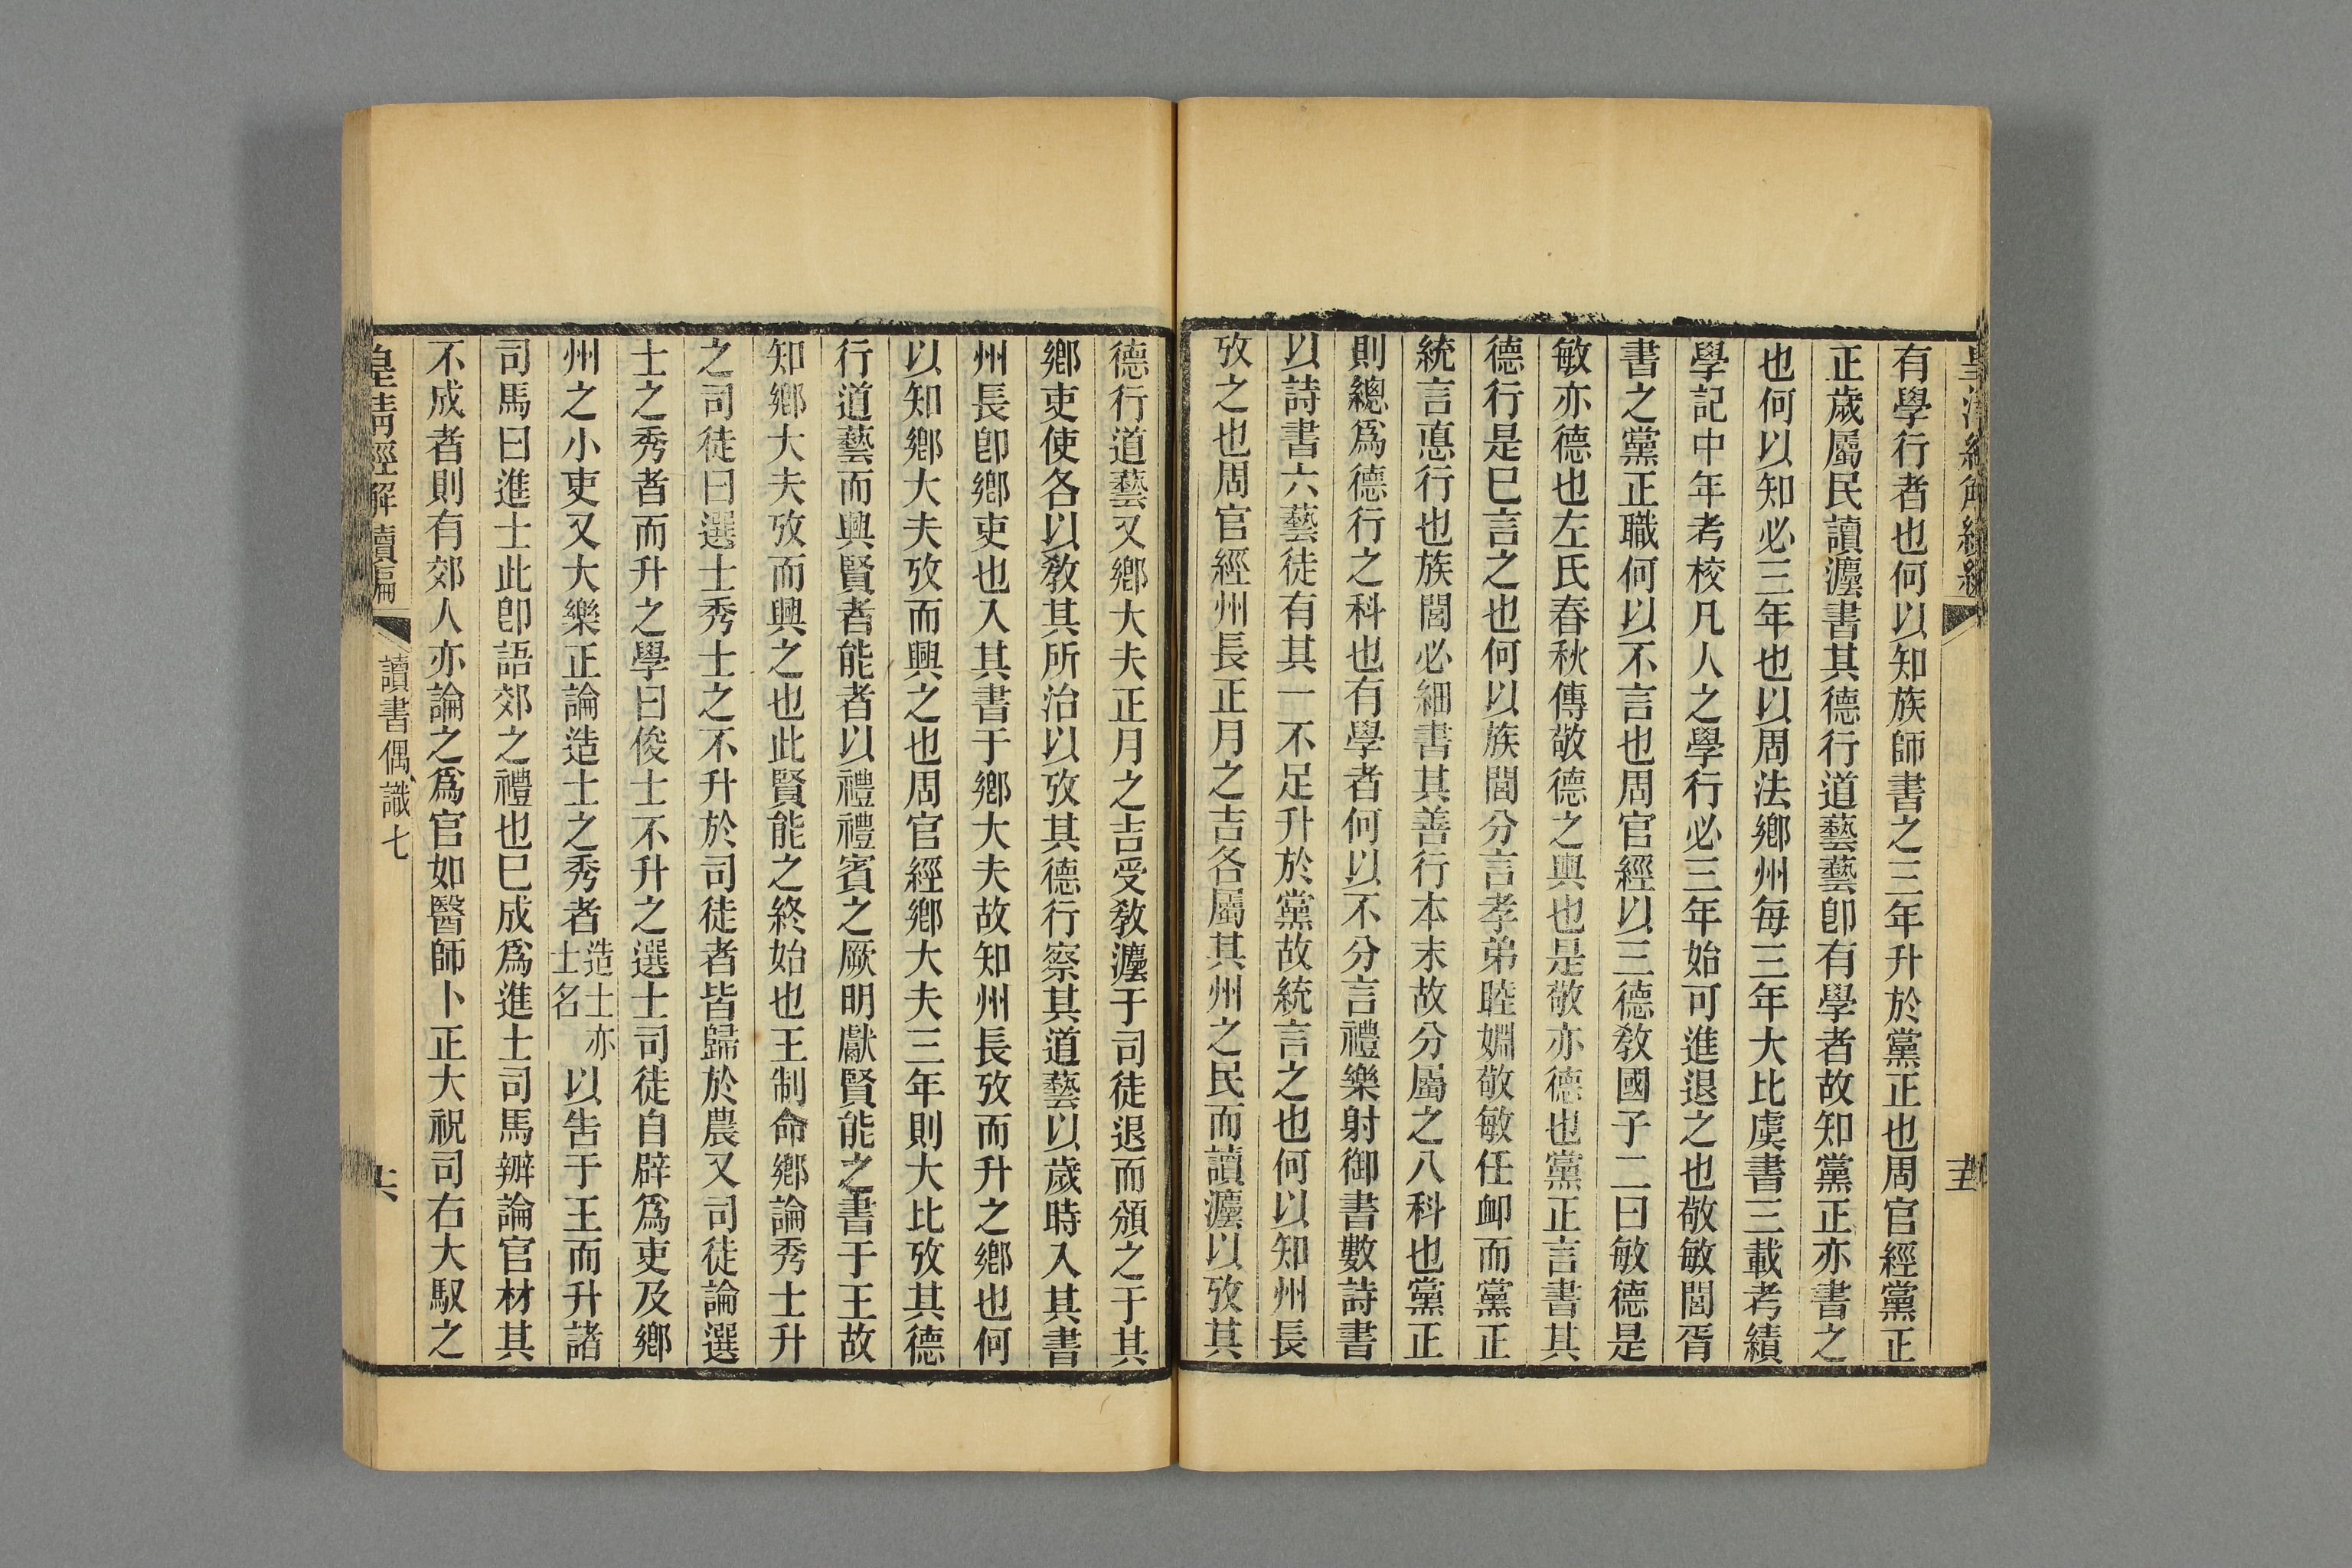 有學行者也何以知族師書之三年升於黨正也周官經黨正
正歲屬民讀灋書其德行道藝藝卽有學者故知黨正亦書之
也何以知必三年也以周法鄉州每三年大比虞書三載考績
學記中年考校凡人之學行必三年始可進退之也敬敏閭胥
書之黨正職何以不言也周官經以三德敎國子二曰敏德是
敏亦德也左氏春秋傳敬德之輿也是敬亦德也黨正言書其
德行是巳言之也何以族閭分言孝弟睦婣敬敏任卹而黨正
統言悳行也族閭必細書其善行本末故分屬之八科也黨正
則總爲德行之科也有學者何以不分言禮樂射御書數詩書
以詩書六藝徒有其一不足升於黨故統言之也何以知州長
攷之也周官經州長正月之吉各屬其州之民而讀灋以攷其
德行道藝又鄉大夫正月之吉受敎灋于司徒退而頒之于其
鄉吏使各以敎其所治以攷其德行察其道藝以歲時入其書
州長卽鄉吏也入其書于鄉大夫故知州長攷而升之鄉也何
以知鄉大夫攷而興之也周官經鄉大夫三年則大比攷其德
行道藝而興賢者能者以禮禮賓之厥明獻賢能之書于王故
知鄉大夫攷而興之也此賢能之終始也王制命鄉論秀士升
之司徒曰選士秀士之不升於司徒者皆歸於農又司徒論選
士之秀者而升之學曰俊士不升之選士司徒自辟爲吏及鄉
州之小吏又大樂正論造士之秀者造士亦士名以告于王而升諸
司馬曰進士此卽語郊之禮也巳成爲進士司馬辨論官材其
不成者則有郊人亦論之爲官如醫師卜正大祝司右大馭之
皇淸經解續編
讀書偶識七